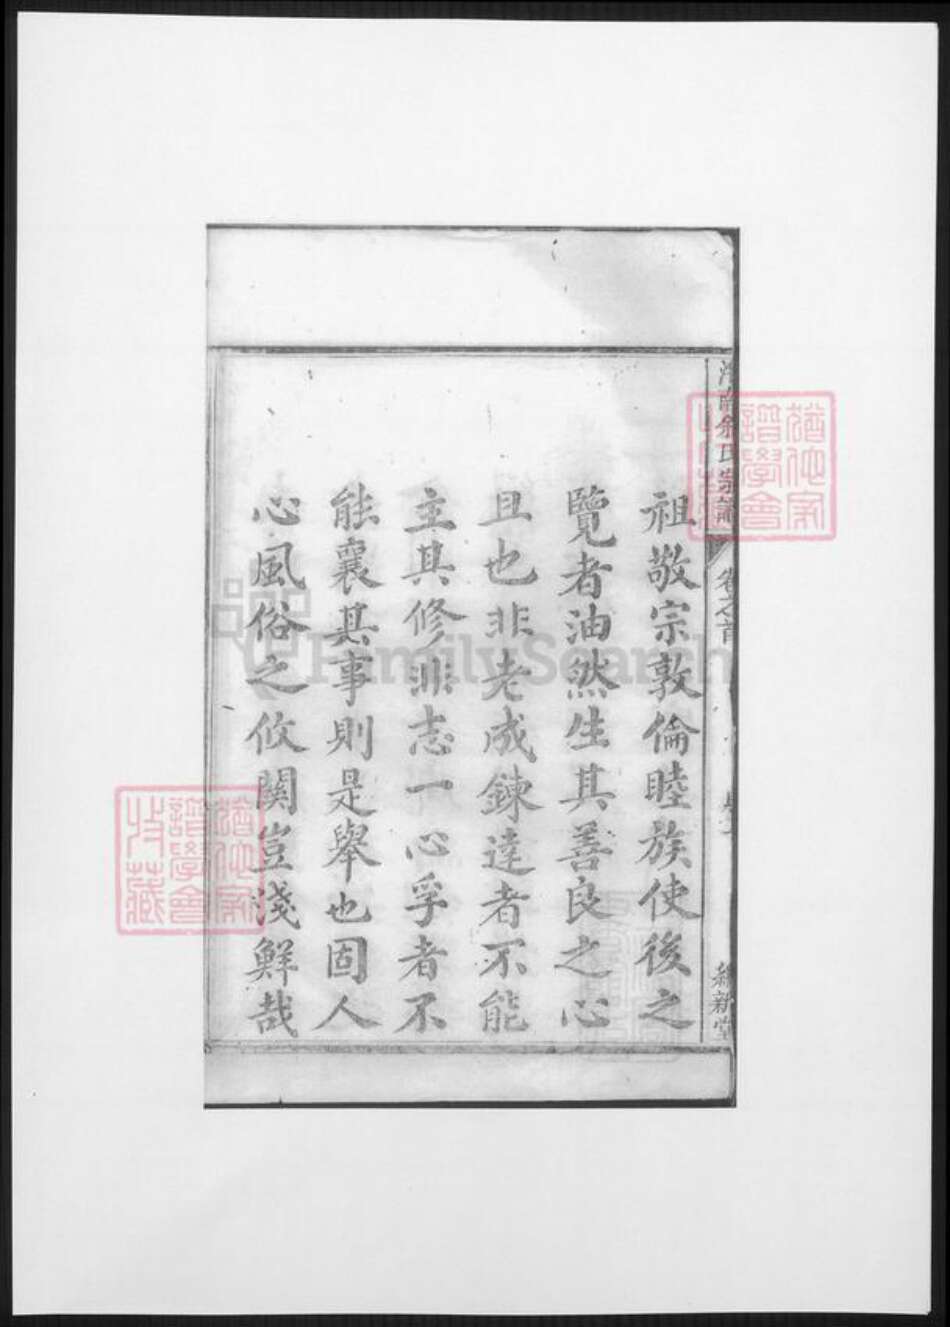 祖敬宗敦倫睦族使後之
覽者油然生其善良之心
且也非老成鍊達者不能
主其修非志一心孚者不
能襄其事則是舉也固人
心風俗之攸関豈淺鮮哉
氏宗譜
卷之首
新堂
猶他家
譜學會
猶他家
譜學會
收藏
FamilySearch